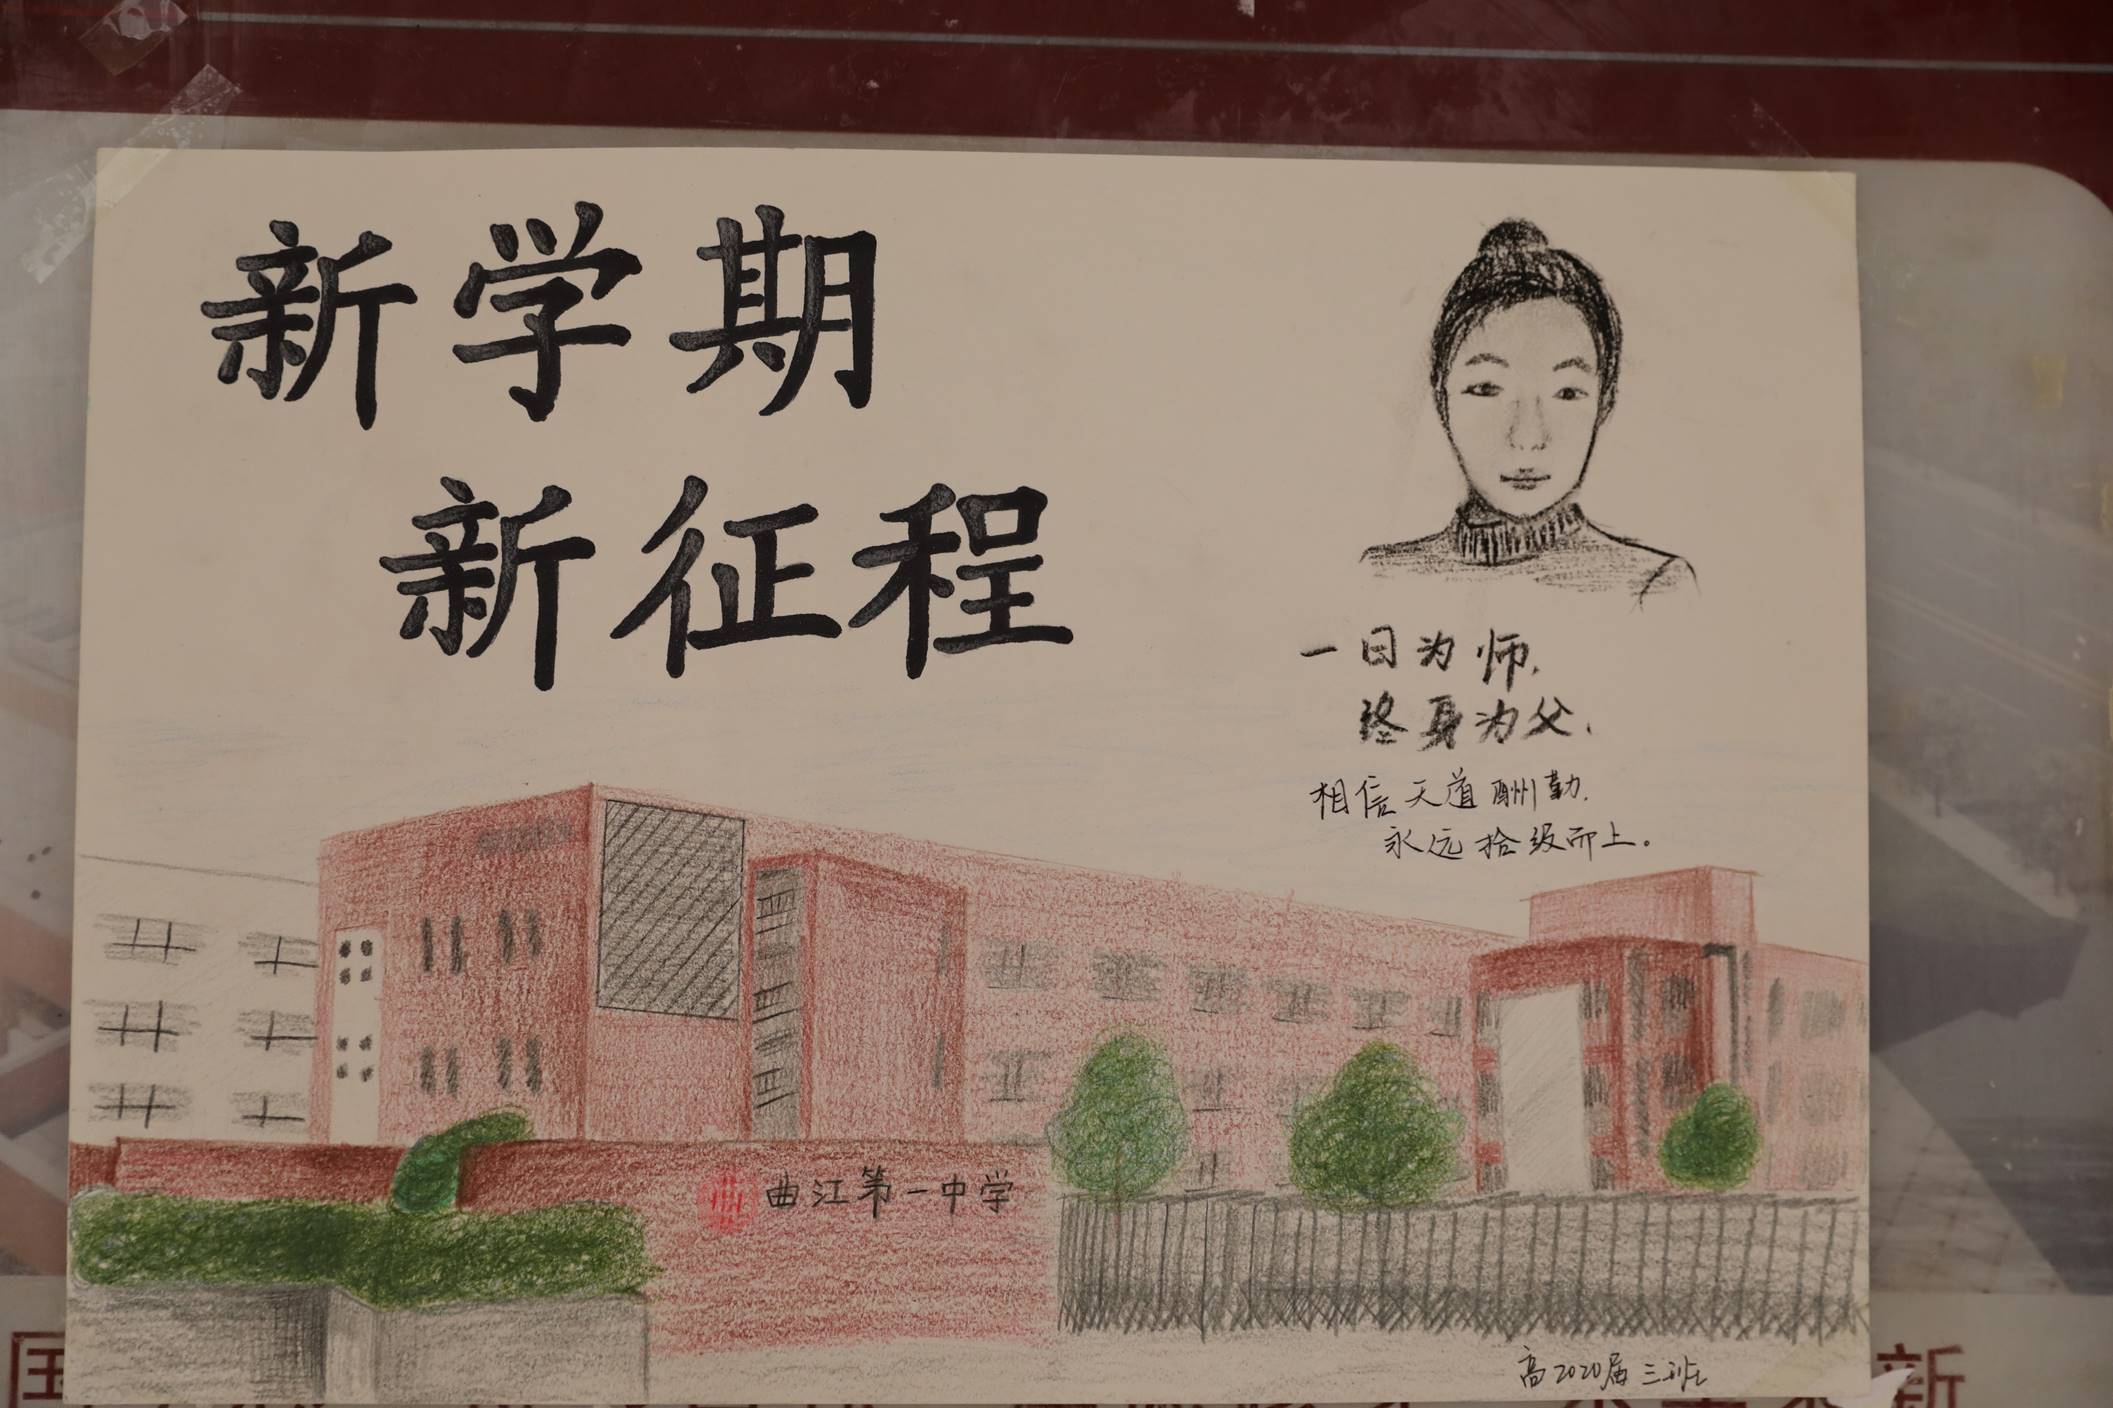 新学期
新征程
一日为师,
终身为父.
相信天道酬勤,
永远拾级而上。
曲江第一中学
高2020届三班
国
新